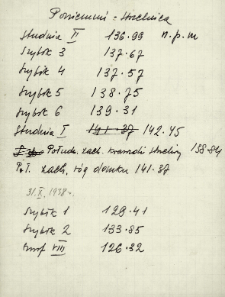 Poniemuń - Strzelnica
Studnia II 136.99 n.p.m
Szybik 3 137.67
Szybik 4 137.57
Szybik 5 138.75
Szybik 6 139.31
Studnia I 142.45
Połudn. zach. krawędź strzelnicy 138.84
Płd. zach. róg domku 141.37
31.X.1938.
Szybik 1 129.41
Szybik 2 133.85
Fort VIII 126.32